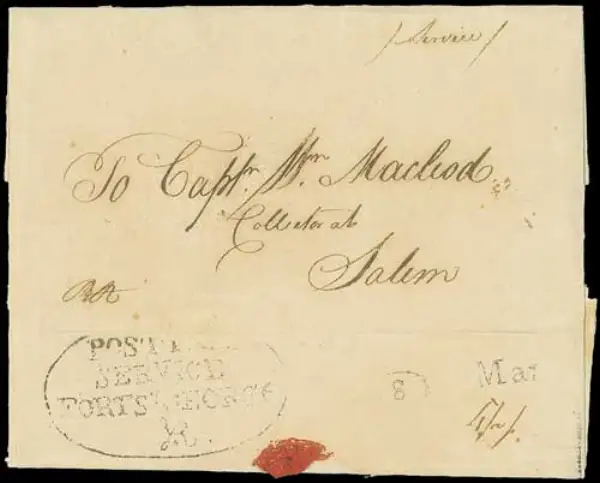 /Service/
To Captn. Wm. Macleod
Collector at
Salem
POST
SERVICE
FORT St. GEORGE
8
Mar